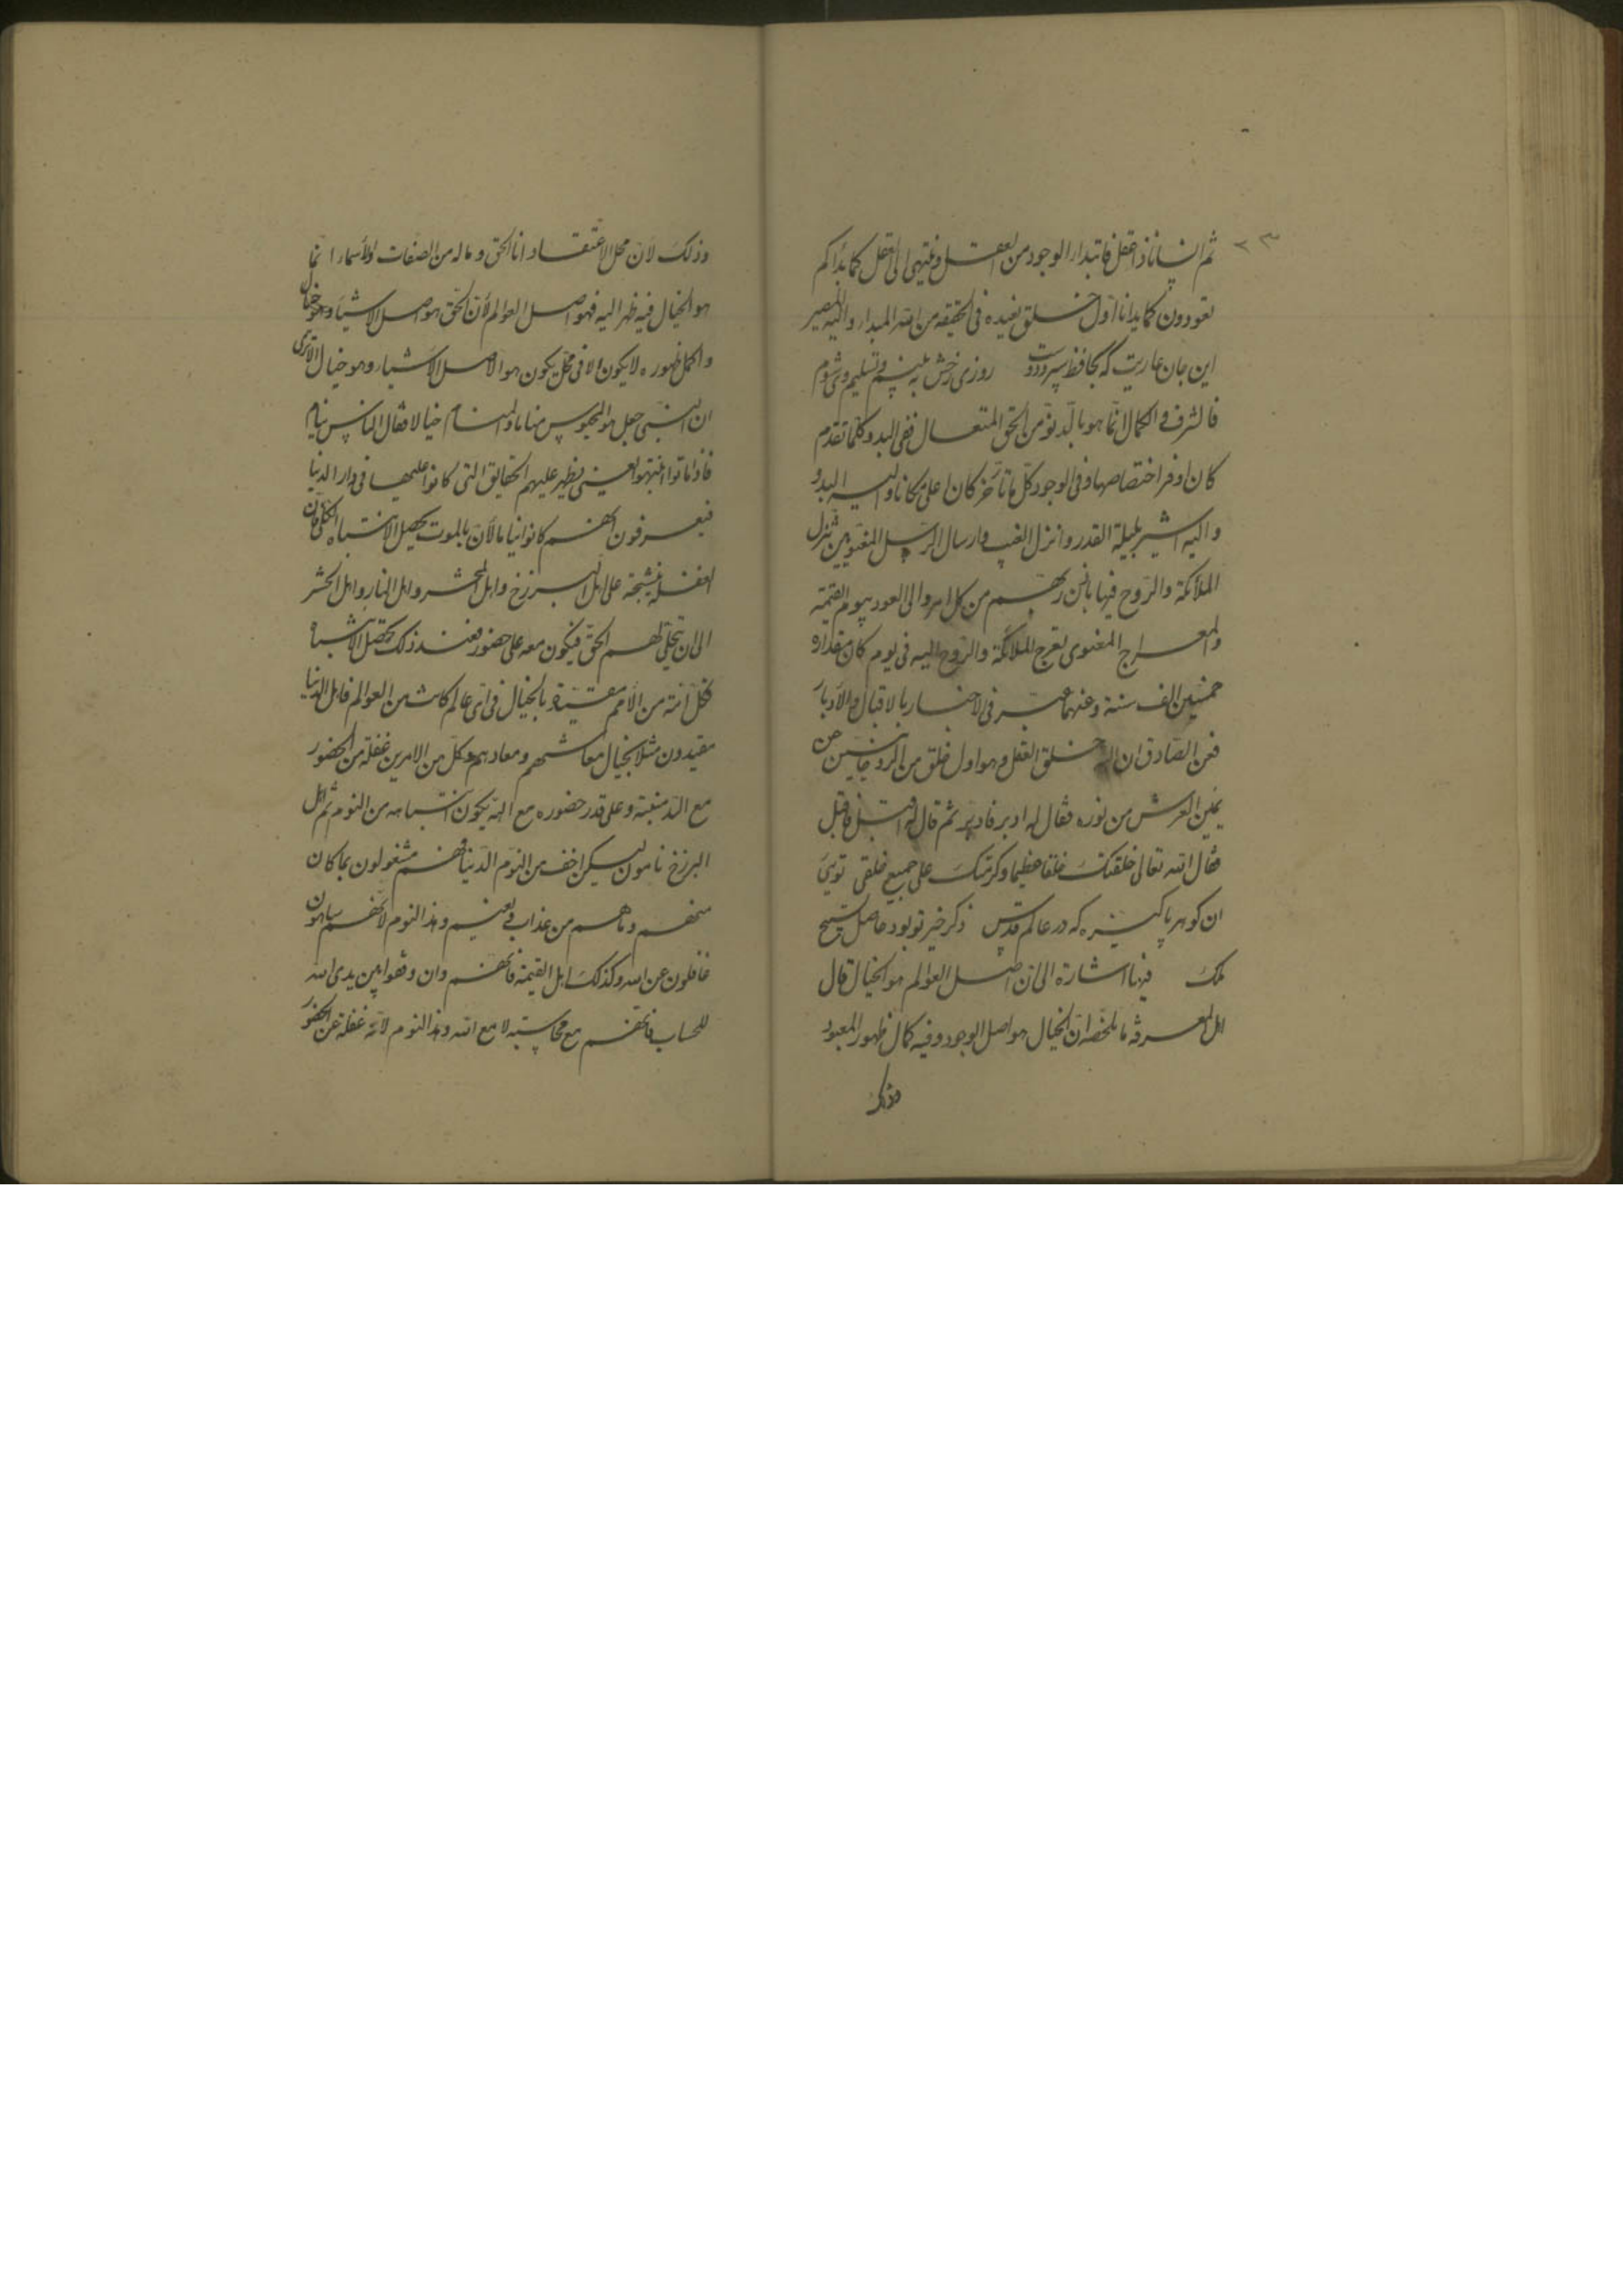 ٢٣
ثم انسانا ذا عقل فابتداء الوجود من العقل وينتهى الى العقل كما بدأكم
تعودون كما بدانا اول خلق نعيده فى الحقيقه من الله المبداء واليه المصير
اين جان عاريت كه بحافظ سپرد دوست روزى رخش ببينم و تسليم وى شوم
فالشرف والكمال انما هو بالدنو من الحق المتعال ففى البدو كلما تقدم
كان اوفر اختصاصها وفى الوجود كل ما تأخر كان اعلى مكانا واليه البدو
واليه اشير بليلة القدر وانزل الغيب وارسال الرسل المعنويين تنزل
الملائكة والروح فيها باذن ربهم من كل امر والى العود بيوم القيمة
والمعراج المعنوى تعرج الملائكة والروح اليه فى يوم كان مقداره
خمسين الف سنة وعنهما عبر فى الاخبار بالاقبال والادبار
فعن الصادق ان الله خلق العقل وهو اول خلق من الروحانيين عن
يمين العرش من نوره فقال له ادبر فادبر ثم قال له اقبل فاقبل
فقال الله تعالى خلقتك خلقا عظيما وكرمتك على جميع خلقى توئى
ان كوهر پاكيزه كه در عالم قدس ذكر خير تو بود حاصل تسبيح
ملك فيها اشارة الى ان اصل العوالم هو الخيال قال
اهل المعرفة ما ملخصه ان الخيال هو اصل الوجود وفيه كمال ظهور المعبود
وذلك
وذلك لان محل الاعتقاد انا الحق وما له من الصفات والاسماء انما
هو الخيال فيه ظهر اليه فهو اصل العوالم لان الحق هو اصل الاشياء وهو خيال
واكمل ظهوره لا يكون الا فى محل يكون هو الاصل الاشياء وهو خيال الا ترى
ان النبى جعل هو المحبوس مناما والمنام خيالا فقال الناس نيام
فاذا ماتوا انتبهوا يعنى يظهر عليهم الحقايق التى كانوا عليها فى دار الدنيا
فيعرفون انهم كانوا نياما لان بالموت يحصل الانتباه الكلى فان
الغفلة منسحبة على اهل البرزخ واهل المحشر واهل النار واهل الحشر
الى ان تجلى لهم الحق فيكون معه على حضور فعند ذلك يحصل الانتباه
فكل امة من الامم مقيدة بالخيال فى اى عالم كانت من العوالم فاهل الدنيا
مقيدون مثلا بخيال معاشهم ومعادهم وكل من الامرين غفلة من الحضور
مع الله منتبه وعلى قدر حضوره مع الله يكون انتباهه من النوم ثم اهل
البرزخ نائمون ليكن اخف من النوم الدنيا فهم مشغولون بما كان
منهم وما هم من عذاب ونعيم وهذا النوم لانهم ساهون
غافلون عن الله وكذلك اهل القيمة فانهم وان وقفوا بين يدى الله
للحساب فانهم مع محاسبته لا مع الله وهذا النوم لانه غفلة عن الحضور